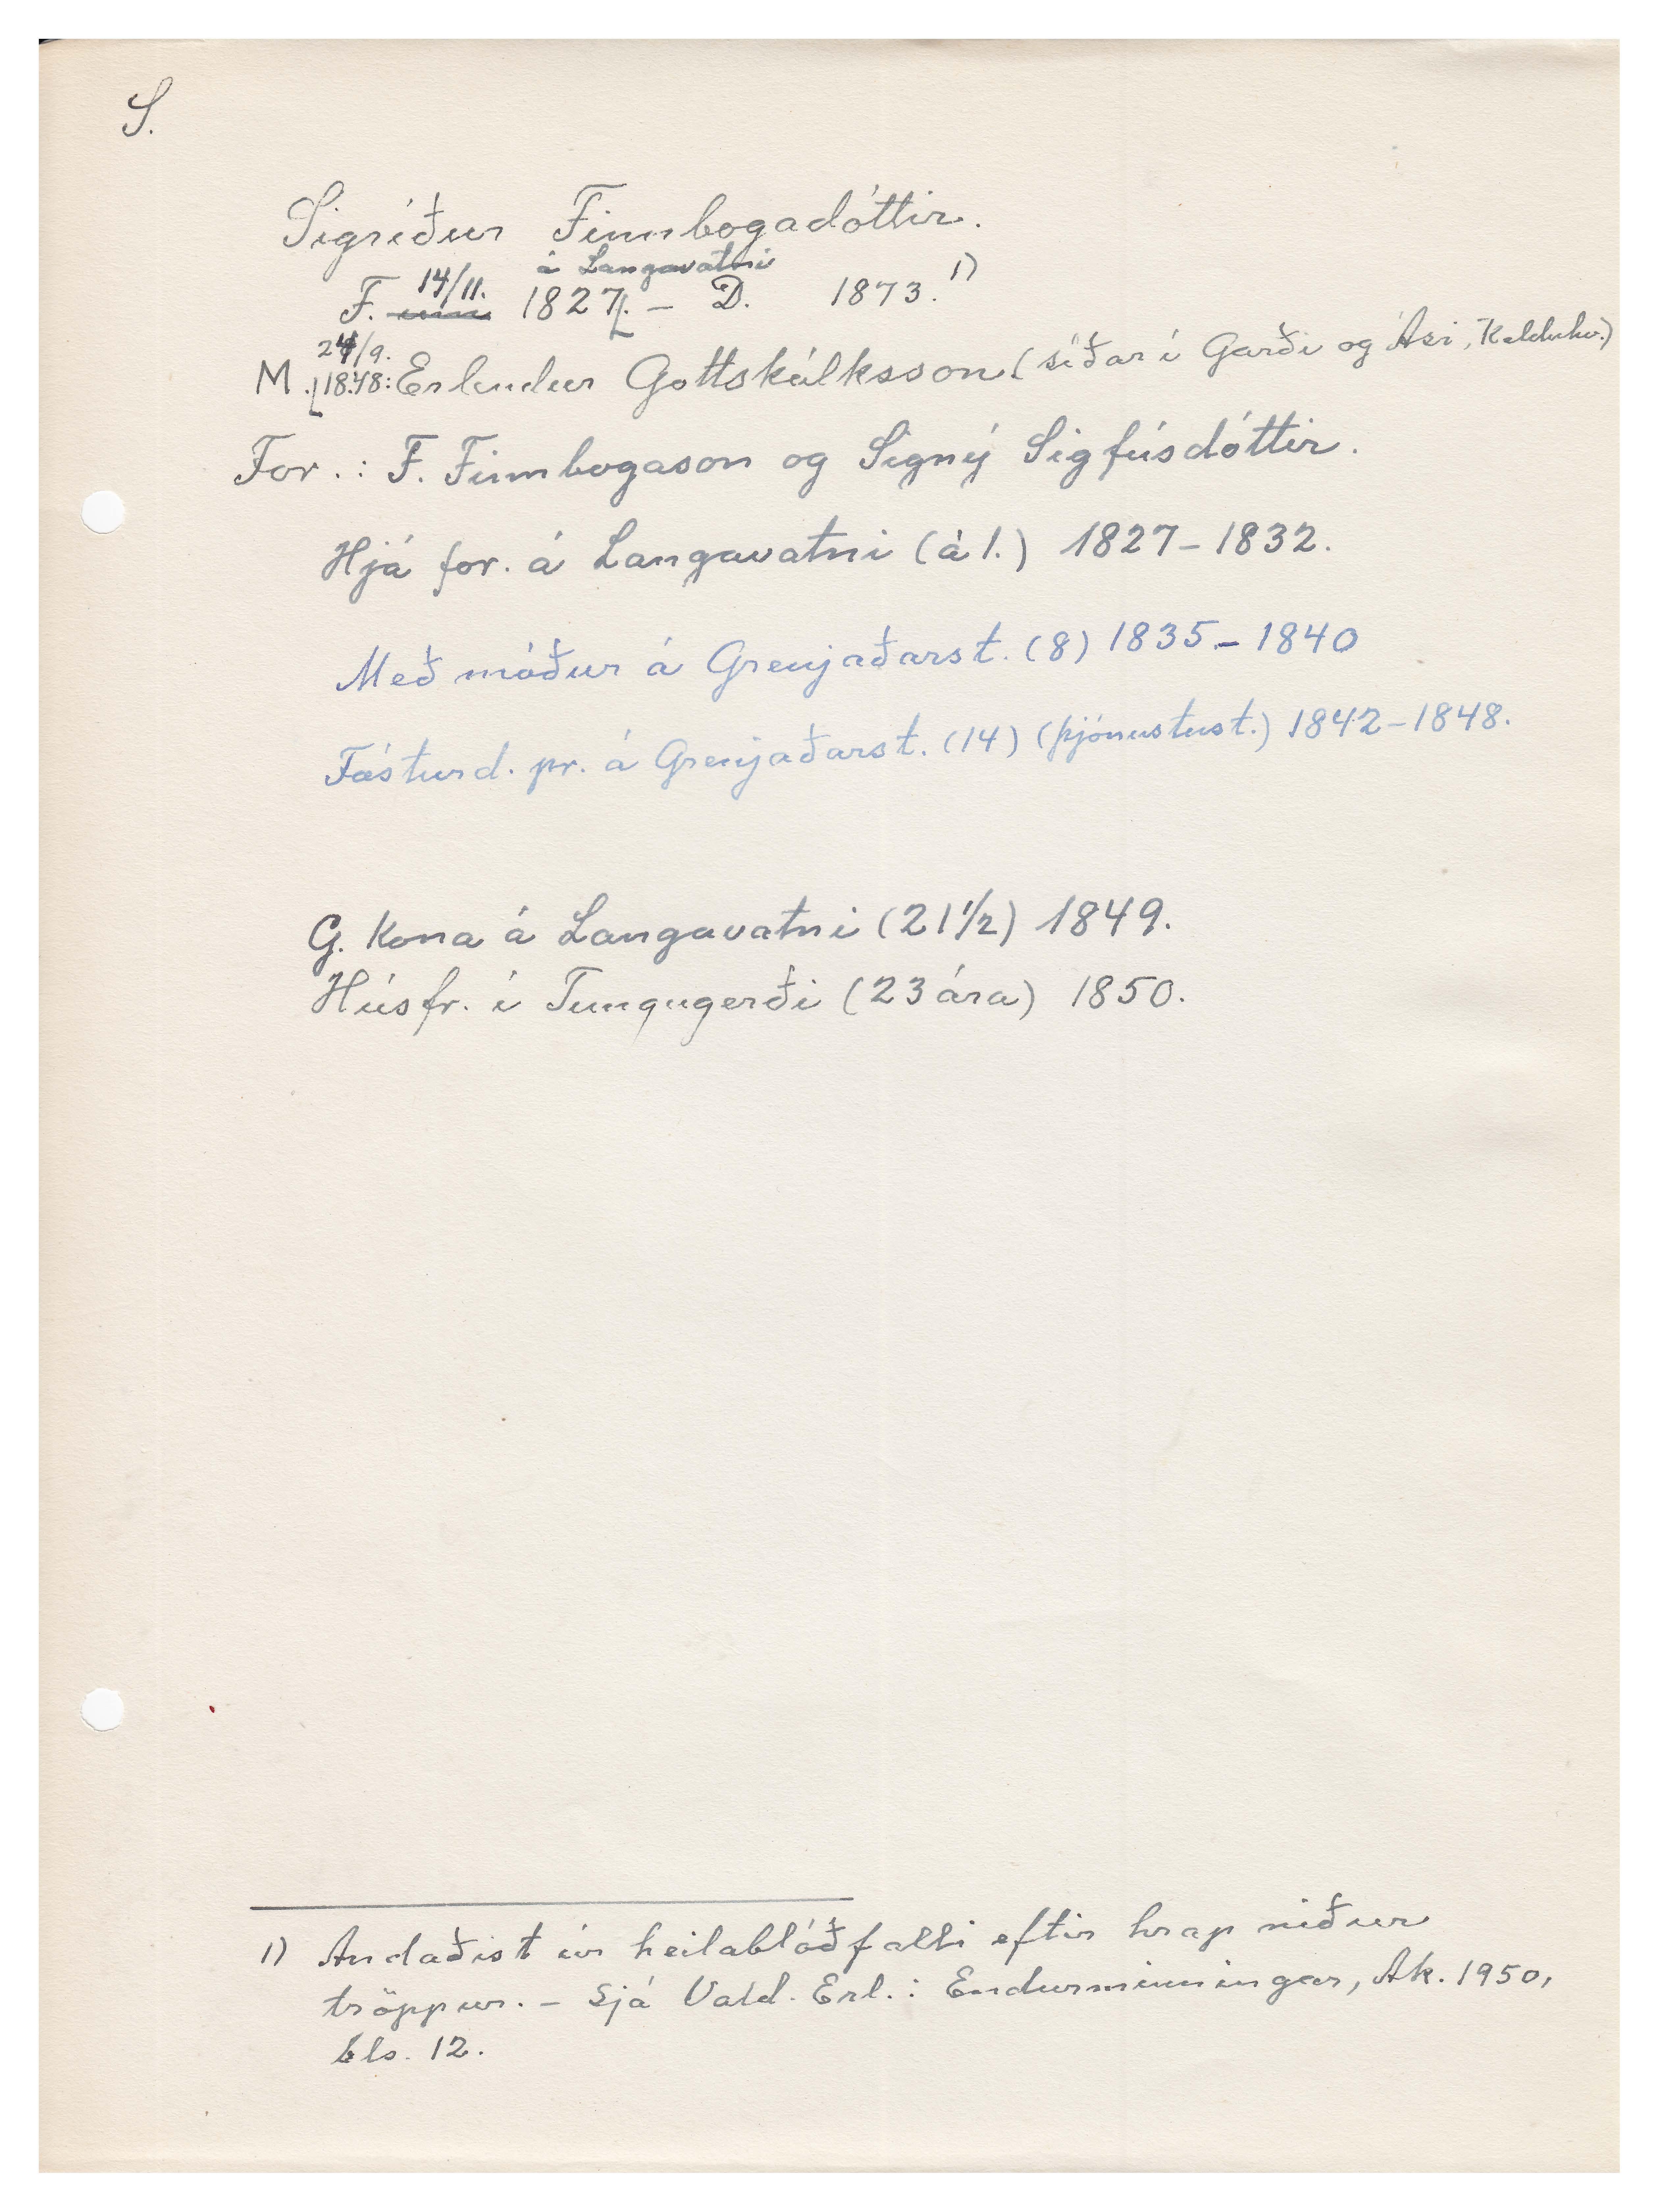 S.
Sigríður Finnbogadóttir.
á Langavatni
F. 14/11. 1827. – D. 1873. 1)
24/9.
M. 1848: Erlendur Gottskálksson (síðar í Garði og Ási, Kelduhv.)
For.: F. Finnbogason og Signý Sigfúsdóttir.
Hjá for. á Langavatni (á 1.) 1827–1832.
Með móður á Grenjaðarst. (8) 1835–1840
Fósturd. pr. á Grenjaðarst. (14) (þjónustust.) 1842–1848.
G. Kona á Langavatni (21 1/2) 1849.
Húsfr. í Tungugerði (23 ára) 1850.
1) Andaðist úr heilablóðfalli eftir hrap niður
tröppur. – Sjá Vald. Erl.: Endurminningar, Ak. 1950,
bls. 12.